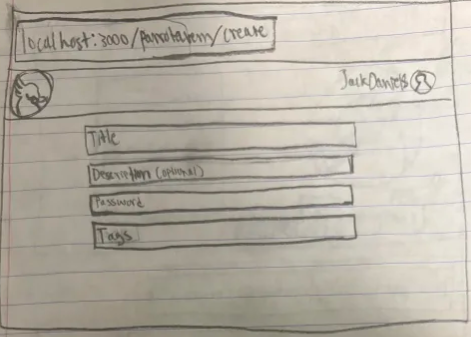 localhost:3000/parrotarem/create
JackDaniels
Title
Description (optional)
Password
Tags